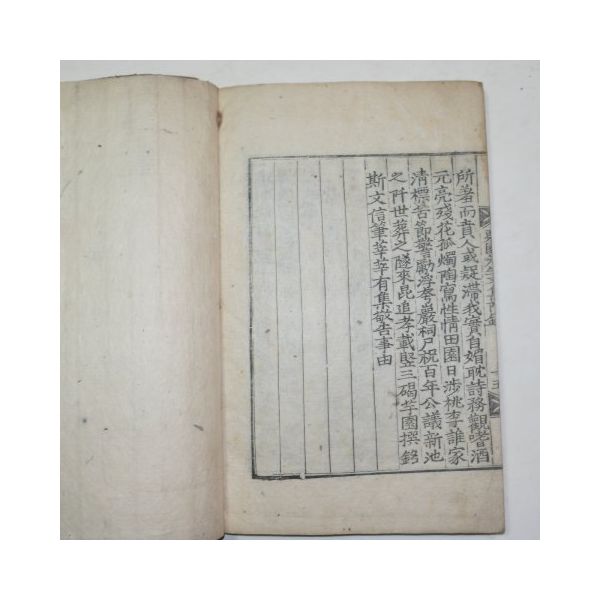 所著而賁人或疑滯我實自媚耽詩務觀嗜酒
元亮殘花孤燭陶寫性情田園日涉桃李誰家
清標苦節警勵浮夸巖祠尸祝百年公議新池
之阡世葬之隧來昆追孝載竪三碣芋園撰銘
斯文信筆莘莘有集敬告事由